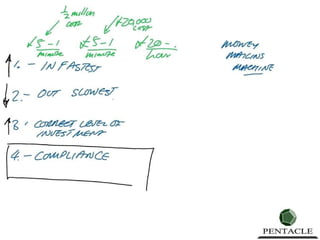 ½ million
less
£20,000
less
£5-1
minute
£5-1
minute
£20-.
hour
MONEY
MAKING
MACHINE
1. - IN FASTEST
2. - OUT SLOWEST.
3. CORRECT LEVEL OF
INVESTMENT
4. - COMPLIANCE
PENTACLE